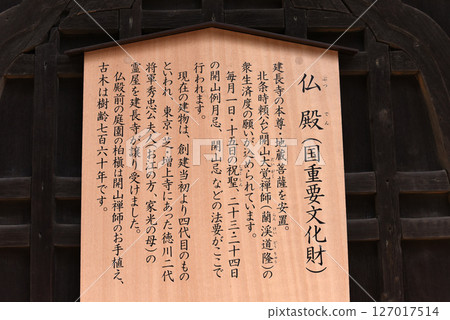 仏殿（国重要文化財）
ぶつ でん
建長寺の本尊・地蔵菩薩を安置。
北条時頼公と開山大覚禅師（蘭渓道隆）の
衆生済度の願いが込められています。
毎月一日・十五日の祝聖、二十三・二十四日
の開山例月忌、開山忌などの法要がここで
行われます。
現在の建物は、創建当初より四代目のもの
といわれ、東京・芝・増上寺にあった徳川二代
将軍秀忠公夫人（お江の方 家光の母）の
霊屋を建長寺が譲り受けました。
仏殿前の庭園の柏槇は開山禅師のお手植え、
古木は樹齢七百六十年です。
PIXTA
pixta.jp - 127017514